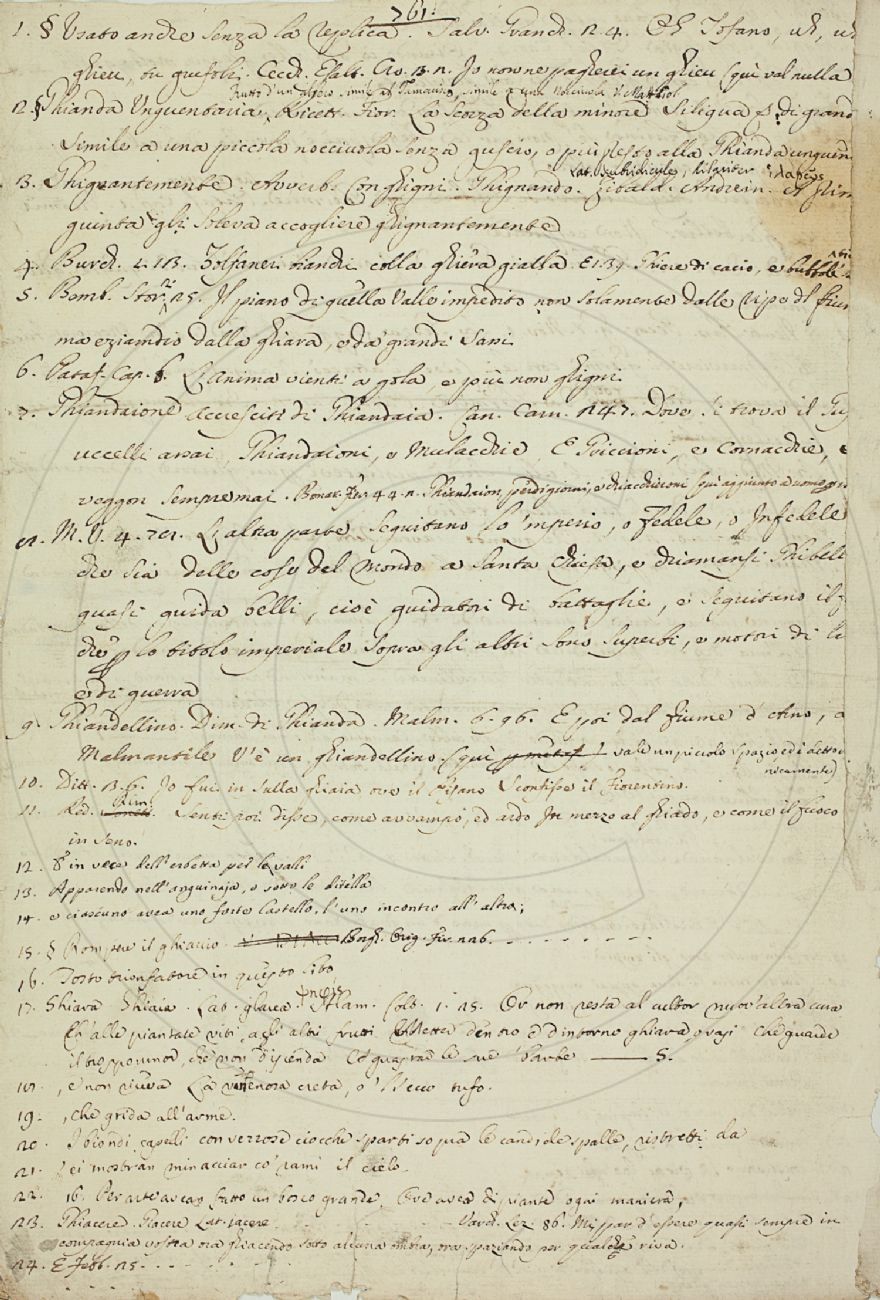 761.
1. § Usato anche senza la replica. Salv. Granch. 2. 4. Eh Tofano, uh, uh
ghieu, tu gufoli. Cecch. Esalt. Cr. 3. 2. Io non ne pagherei un ghieu (qui val nulla
Frutto d'un albero simile al Tamarisco, simile a una Nocciuola. Mattiol
2. § Ghianda Unguentaria. Ricett. Fior. La scorza della minore siliqua di grand
simile a una piccola nocciuola senza guscio, o più presto alla Ghianda unguen
Lat. subridicule, hilariter
3. Ghignantemente. Avverb. Con ghigni. Ghignando. Andrein.
quinta gli soleva accogliere ghignantemente
4. Burch. 2. 113. Zolfanei bandi colla ghiera gialla. E 1. 34 Ghiere di cacio, e
5. Bemb. Stor. 25. Il piano di quella Valle impedito non solamente dalle ripe del fiu
ma eziandio dalla ghiara, e da' grandi Sassi
6. Pataf. Cap. 8. L'anima vienti a gola e più non ghigni.
7. Ghiandaione accrescit. di Ghiandaia. Can. Carn. 147. Dove si trova il
uccelli assai, Ghiandaioni, e Mulacchie, E Piccioni, e Cornacchie,
veggon sempremai. Buonar. Fier. 4. 4. 2. Ghiandaion, perdigiorni, e chiacchieroni (qui aggiunto a uomo
8. M. V. 4. 78. L'altra parte seguitano lo 'mperio, o fedele, o Infedele
che sia delle cose del mondo a Santa Chiesa, e chiamansi Ghibell
quasi guida belli, cioè guidatori di battaglie, e seguitano il
che lo titolo imperiale sopra gli altri sono superbi, e motori di li
e di guerra
9. Ghiandellino. Dim. di Ghianda. Malm. 6. 96. E poi dal fiume d'Arno, a
Malmantile V'è un ghiandellino (qui vale un piccolo spazio, ed è detto
nicamente)
10. Ditt. 3. 6. Io fui in sulla ghiaia ove il Pisano Sconfisse il Fiorentino.
Rim
11. Red. Sonett. Senti poi disse, come avvampo, ed ardo In mezzo al ghiado, e come il fuoco
in seno.
12. E in vece dell'erbetta per le valli
13. Apparendo nell'anguinaja, o sotto le ditella
14. e ciascuno avea uno forte Castello, l'uno incontro all'altro;
15. § Rompere il ghiaccio. Borgh. Orig. Fir. 226. - - - - - - - -
16. Tosto trionfatore in questo sito
17. Ghiara Ghiaia. Lat. glarea. Alam. Colt. 1. 25. Or non resta al cultor nuov'altra cura
Ch'alle piantate viti, agli altri frutti Metter dentro e d'intorno ghiara, o vasi Che guarde
il troppo umor, che non discenda Ed guastar le sue barbe —— S.
18. , e non viva La velenosa creta, o 'l secco tufo.
19. , che grida all'arme.
20. I biondi capelli con vezzose ciocche sparti sopra le candide spalle, ristretti da
21. Lei mostran minacciar co' rami il cielo.
22. 16. Per arte avean fatto un bosco grande, Ove avea di piante ogni maniera;
23. Ghiacere. Giacere Lat. jacere. - - - - - Varch. Lez. 86. Mi par d'essere quasi sempre in
compagnia vostra ora ghiacendo sotto alcuna ombra, ora spaziando per qualche riva.
24. E Febb. 25. - - - - - -